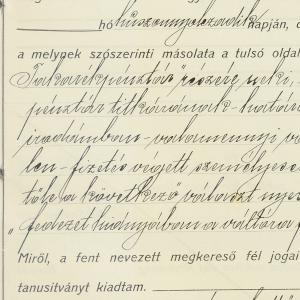 hó huszonnyolczadik napján, 
a melynek szószerinti másolata a tulsó oldal
Takarékpénztár" részére neki,
pénztár titkárának - határ
irodámban - valamennyi vá
len - fizetés végett személyese
tőle a következő választ nyer
"fedezet hiányában a váltóra
Miről, a fent nevezett megkereső fél jogai
tanusítványt kiadtam.